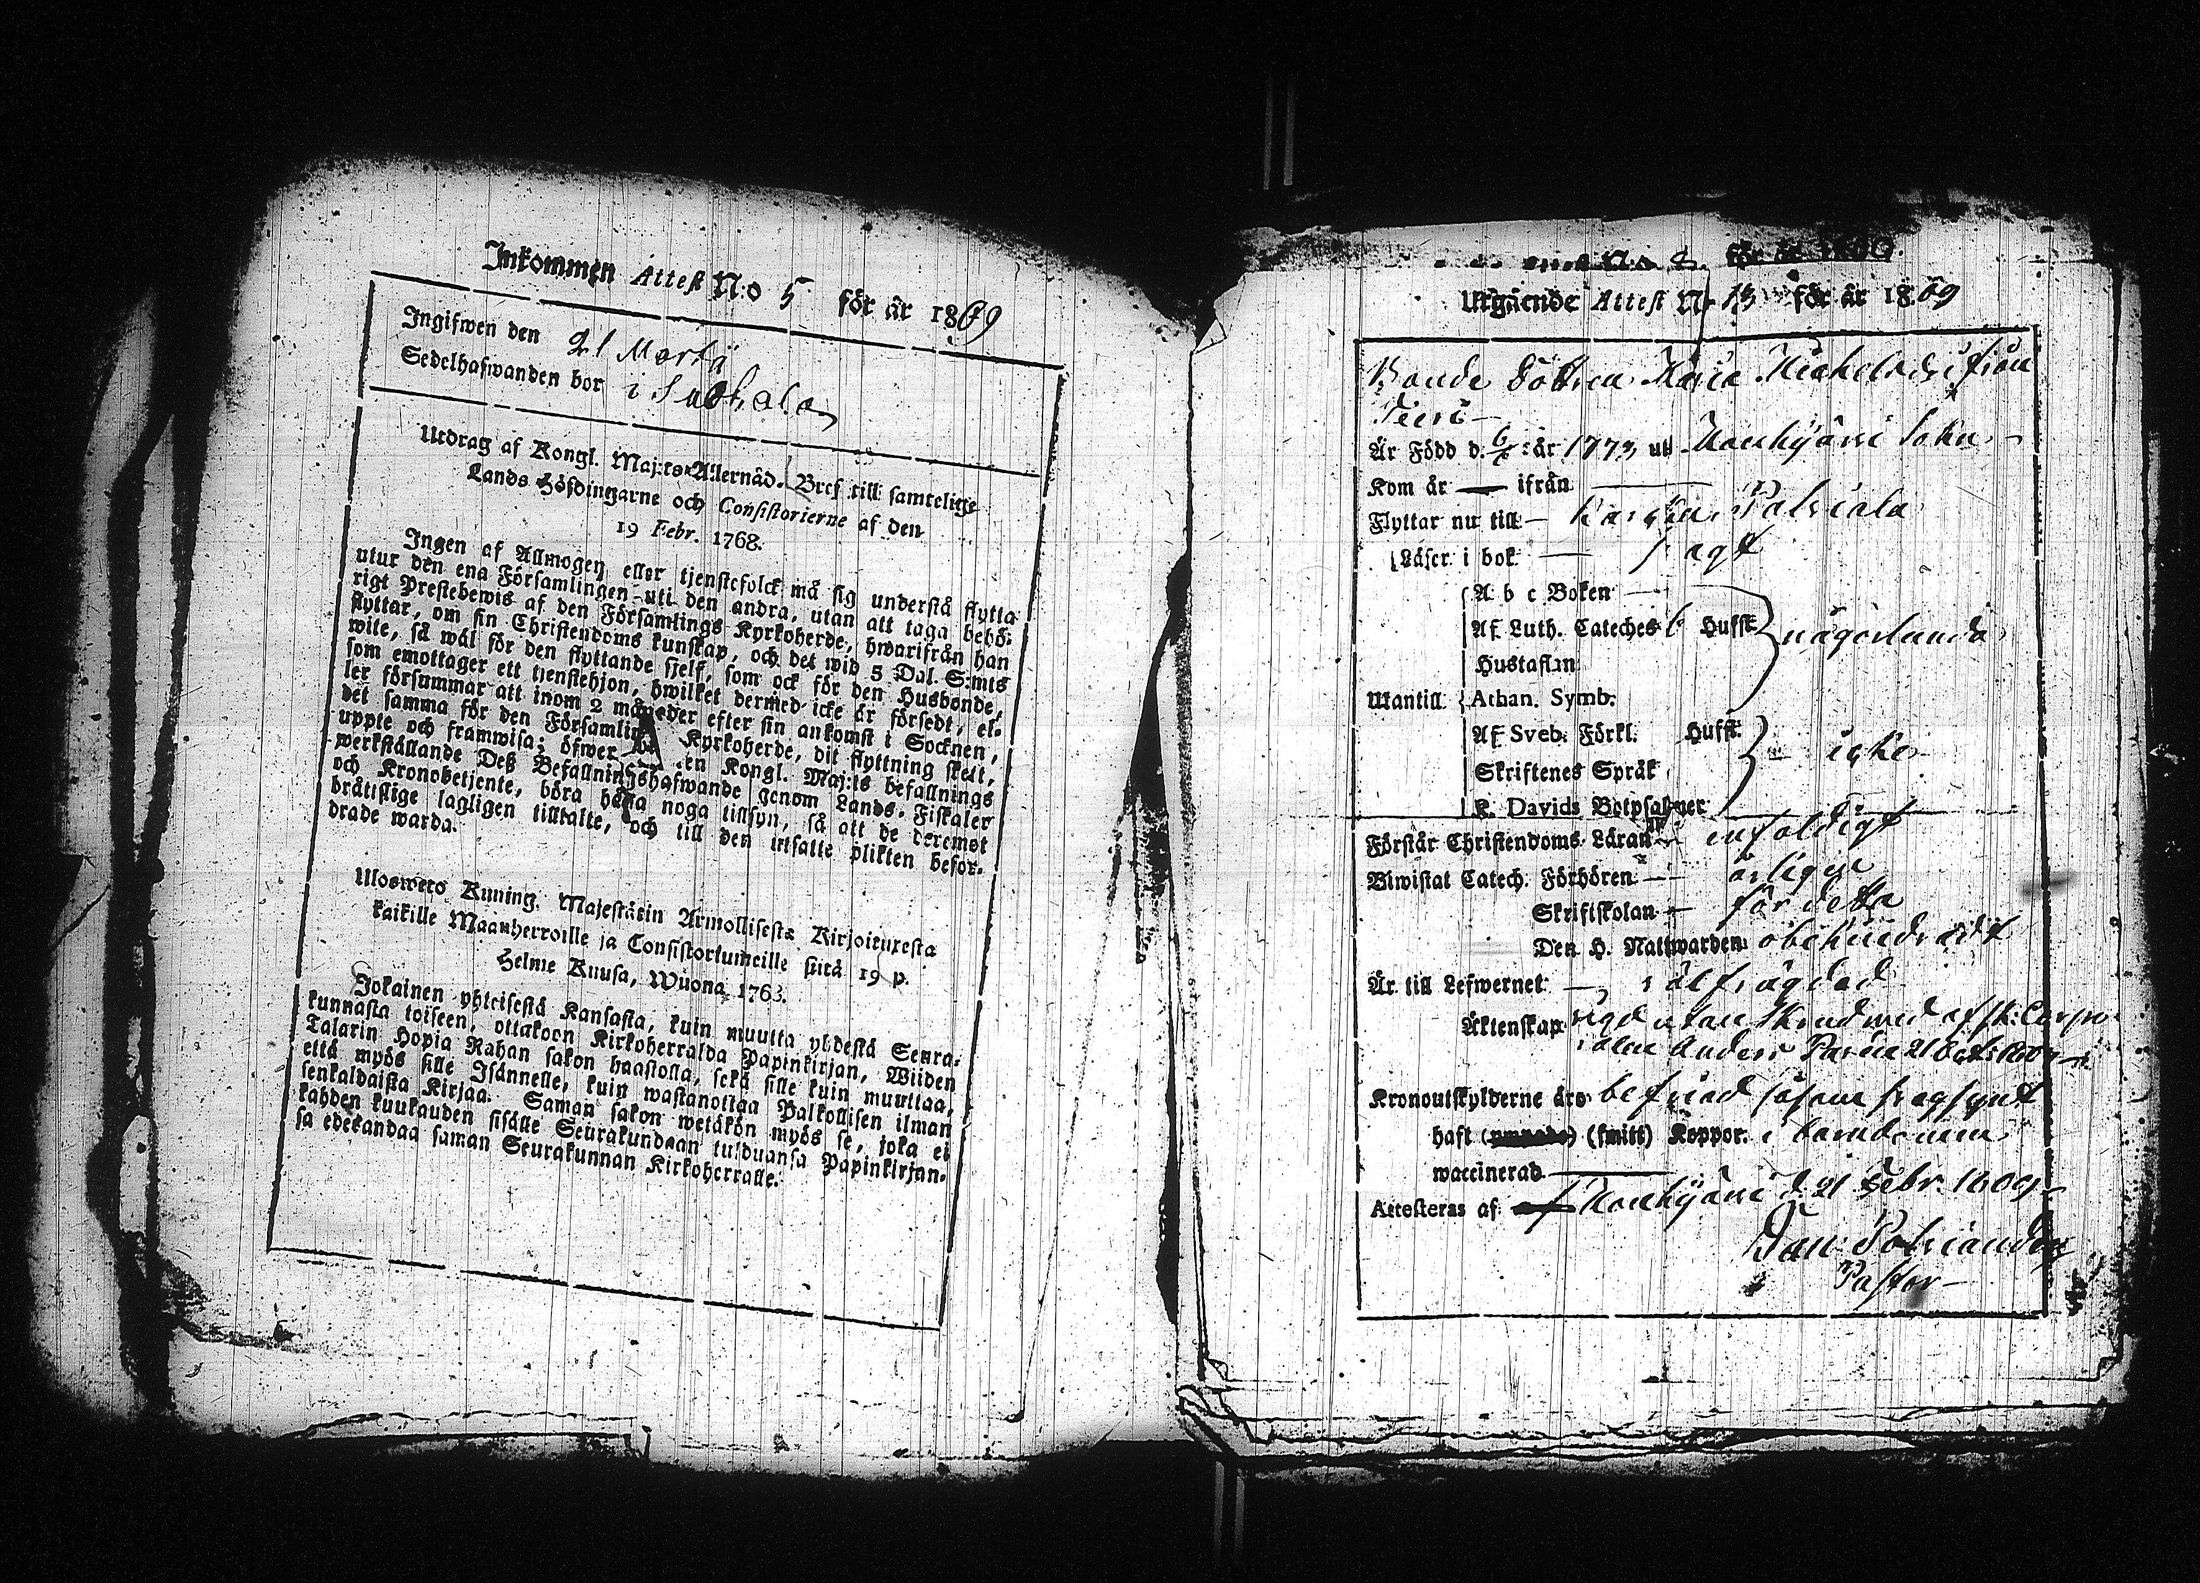 Inkommen Attest No 5 för år 1809
Ingifwen den 21 Martii
Sedelhafwanden bor i Suokala
Utdrag af Kongl. Maj:ts Allernåd. Bref till samtelige
Lands Höfdingarne och Consistorierne af den
19 Febr. 1768.
Ingen af Allmogen eller tjenstefolck må sig understå flytta
utur den ena Församlingen uti den andra, utan att taga behö-
rigt Prestebewis af den Församlings Kyrkoherde, hwarifrån han
flyttar, om sin Christendoms kunskap, och det wid 5 Dal. S:mts
wite, så wäl för den flyttande sjelf, som ock för den Husbonde,
som emottager ett tjenstehjon, hwilket dermed icke är försedt, el-
ler försummar att inom 2 måneder efter sin ankomst i Socknen,
det samma för den Församlings Kyrkoherde, dit flyttning skett,
uppte och framwisa; öfwer en Kongl. Maj:ts befallnings
werkställande Deß Befallningshafwande genom Lands-Fiskaler
och Kronobetjente, böra hafwa noga tillsyn, så att de deremot
bråttslige lagligen tilltalte, och till den utsatte plikten befor-
drade warda.
Uloswero Kuning. Majestätin Armollisesta Kirjoituxesta
kaikille Maanherroille ja Consistoriumeille siitä 19 p.
Helme Kuusa, Wuonna 1768.
Jokainen yhteisestä Kansasta, kuin muutta yhdestä Seura-
kunnasta toiseen, ottakoon Kirkoherralda Papinkirjan, Wiiden
Talarin Hopia Rahan sakon haastolla, sekä sille kuin muuttaa,
että myös sille Isännelle, kuin wastanottaa Palkollisen ilman
senkaldaista Kirjaa. Saman sakon wetäkön myös se, joka ei
kahden kuukauden sisälle Seurakundaan tulduansa Papinkirjan-
sa edeskandaa saman Seurakunnan Kirkoherralle.
Utgående Attest No 13 för år 1809
Bonde Dottren Maria Michelsdr ifrån
Är Född d. år 1773, uti Kaukjärvi Sokn
Kom år — ifrån —
Flyttar nu till
Läser i bok — sagt
A b c Boken —
Af Luth. Cateches 6 Hufst. någorlunda
Hustaflan
Utantill Athan. Symb.
Af Sveb. Förkl. Hufst. icke
Skriftenes Språk
K. Davids Botpsalmer
Förstår Christendoms Läran enfaldigt
Biwistat Catech. Förhören — årligen
Skriftskolan — för detta
Den H. Nattwarden obehindradt
Är till Lefwernet — wälfrägdad
Äktenskap
Kronoutskylderne äro befriad såsom
haft (smitt) Koppor. i barndomen
waccinerad —
Attesteras af d. 21 Febr. 1809
Pastor